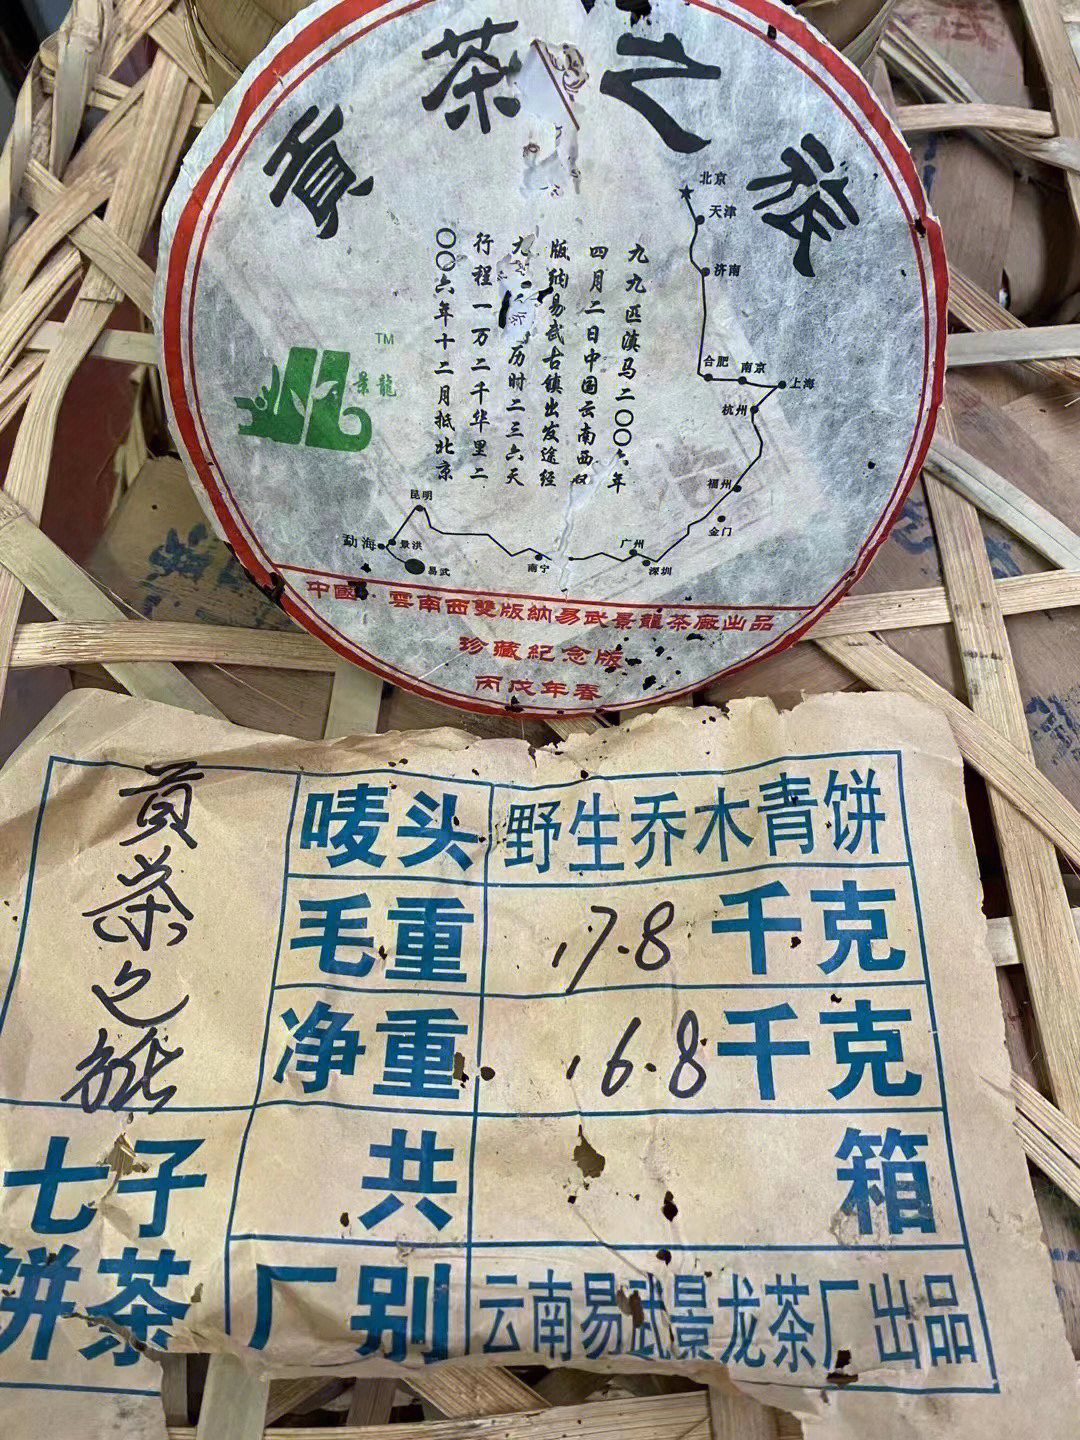 贡茶之旅
TM
景龍
九九匹滇马二〇〇六年
四月二日中国云南西双
版纳易武古镇出发途经
历时二三六天
行程一万二千华里二
〇〇六年十二月抵北京
北京
天津
济南
合肥
南京
上海
杭州
福州
金门
广州
深圳
南宁
昆明
勐海
景洪
易武
中國·雲南西雙版納易武景龍茶廠出品
珍藏紀念版
丙戌年春
贡茶
唛头 野生乔木青饼
毛重 17.8 千克
净重 16.8 千克
共 箱
七子
饼茶
厂别 云南易武景龙茶厂出品